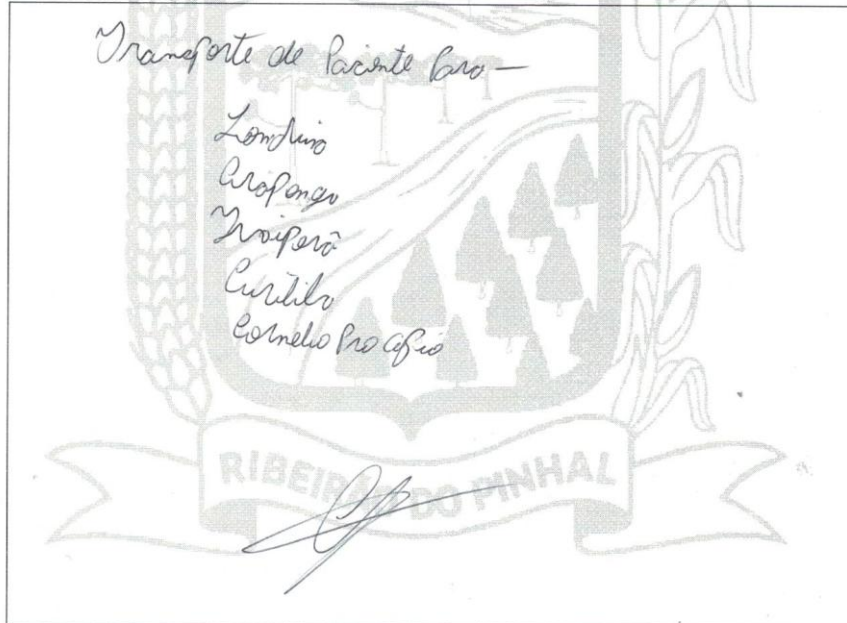 Transporte de Paciente Para —
Londrina
Arapongas
Ivaiporã
Curitiba
Cornelio Procopio
RIBEIRÃO DO PINHAL